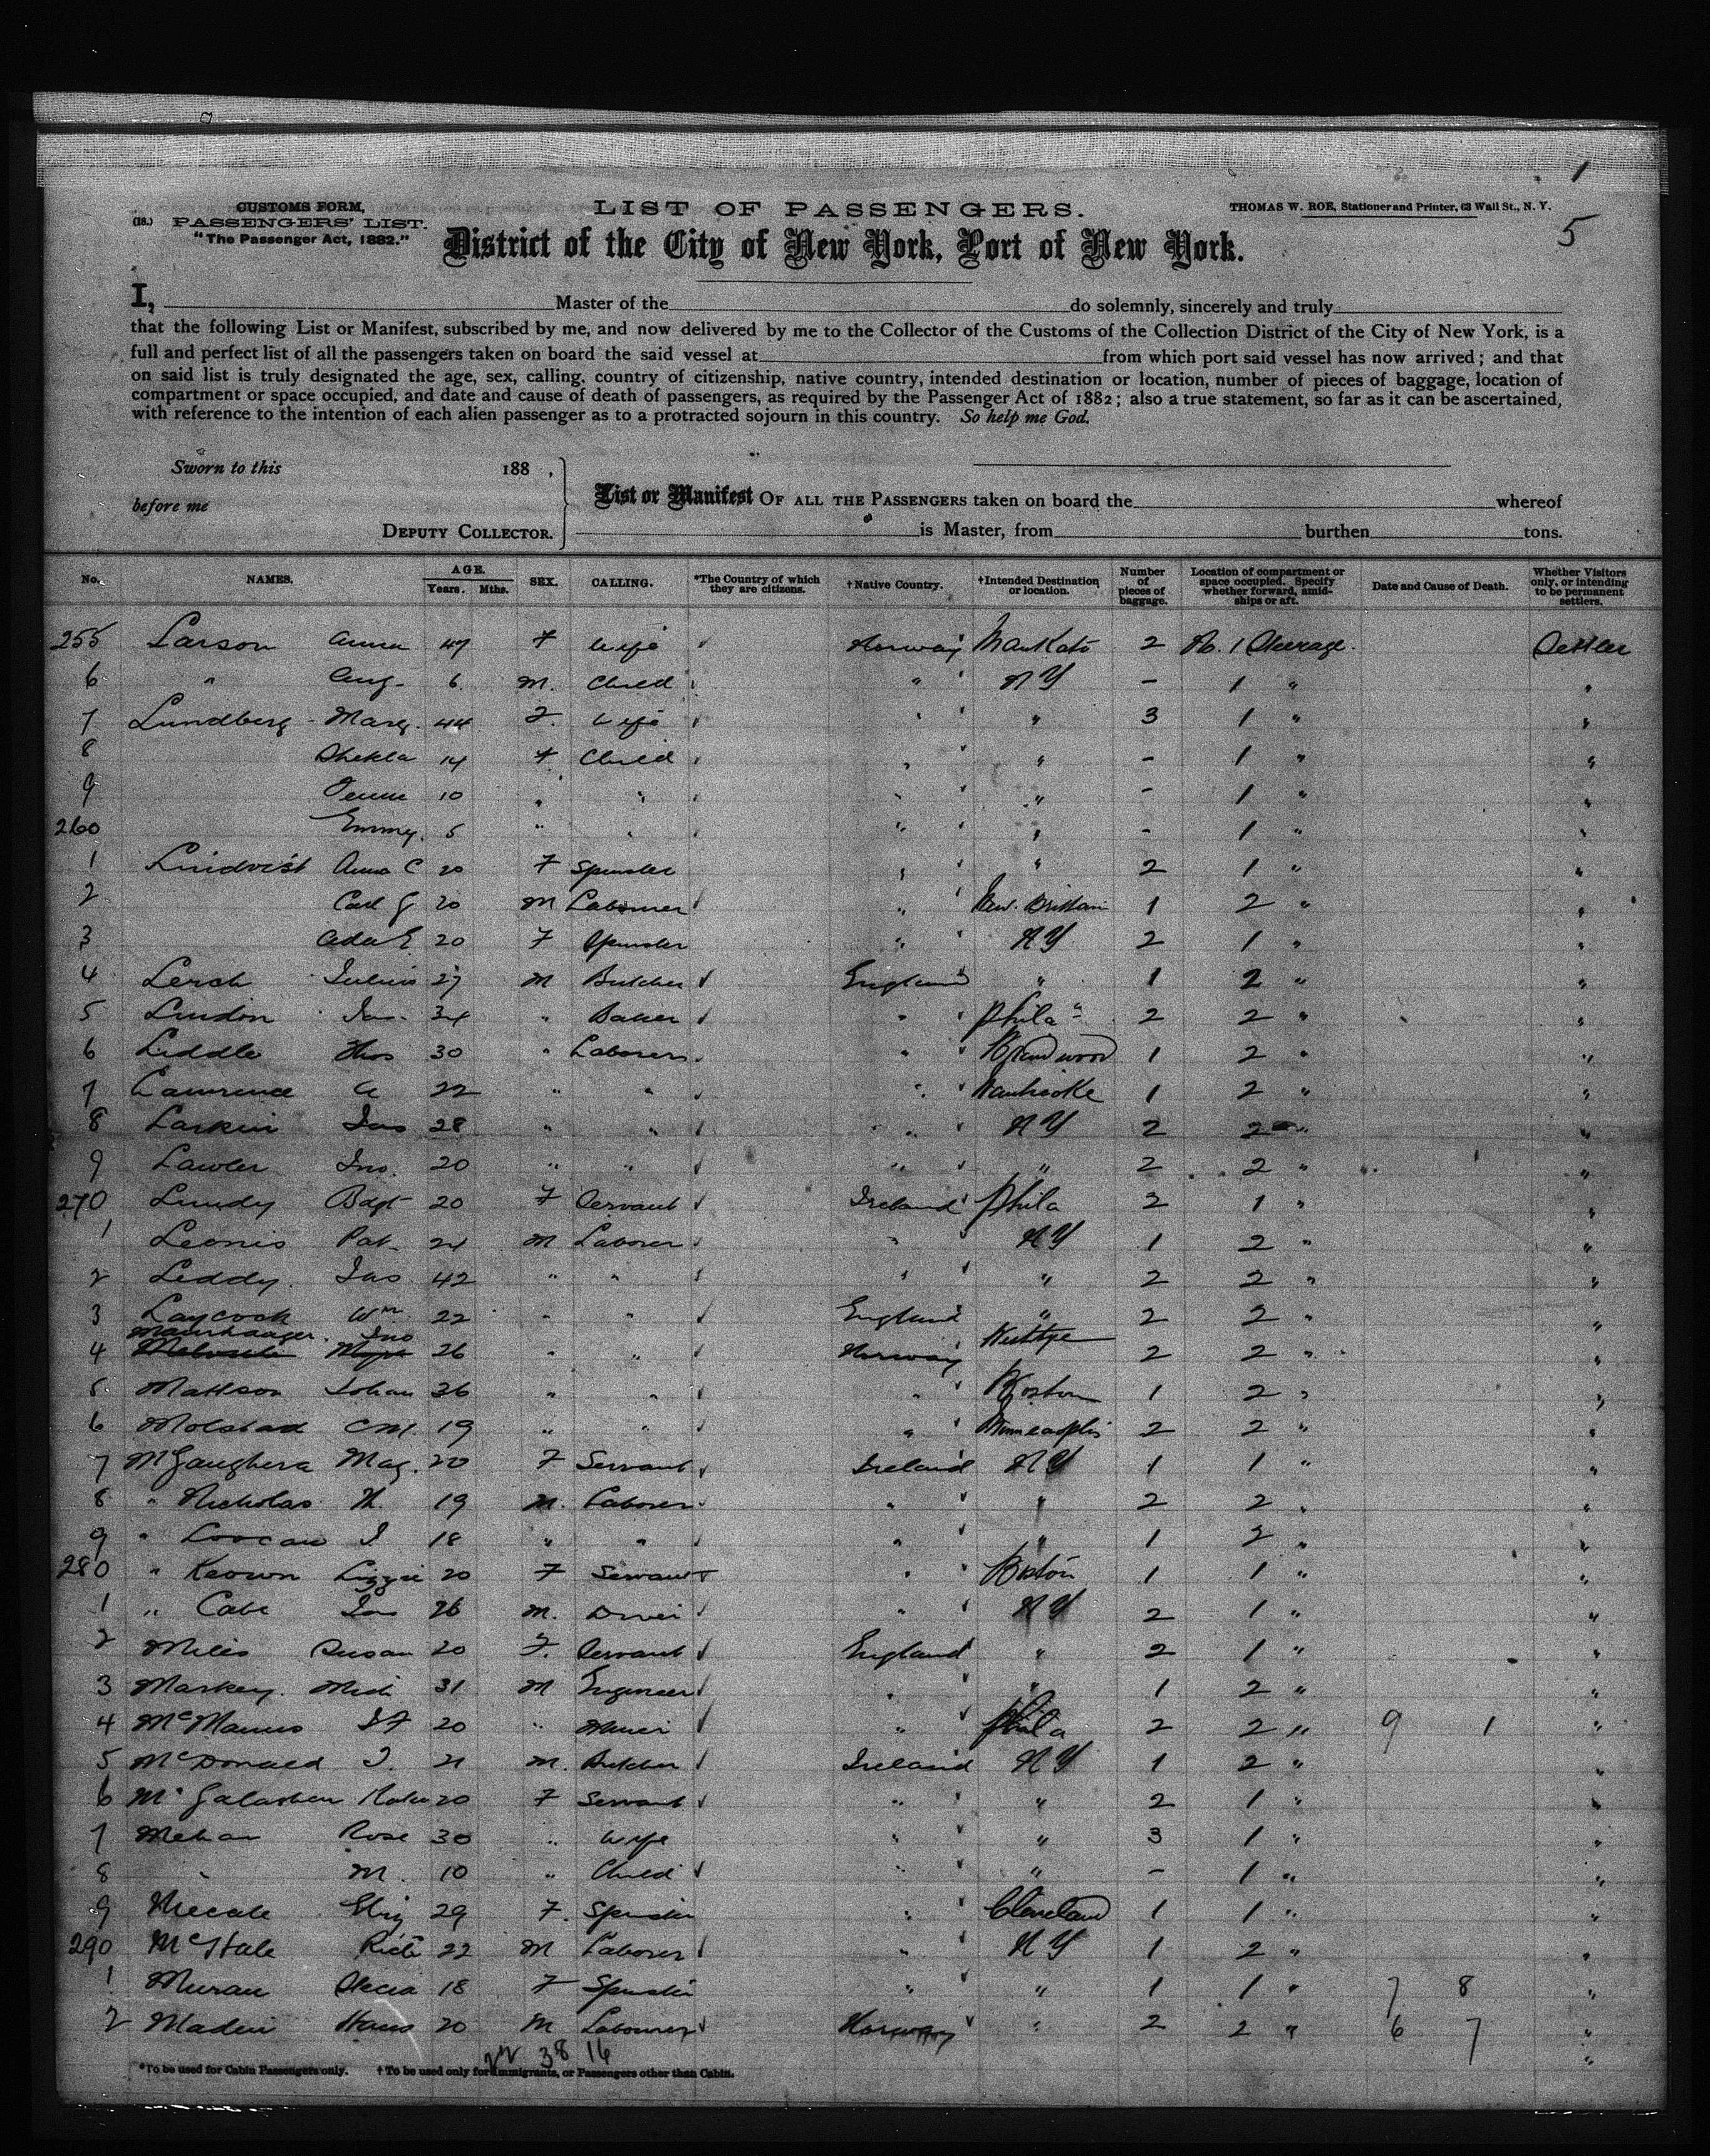 1
5
CUSTOMS FORM,
(18.) PASSENGERS' LIST.
"The Passenger Act, 1882."
LIST OF PASSENGERS.
THOMAS W. ROE, Stationer and Printer, 63 Wall St., N. Y.
District of the City of New York, Port of New York.
I, Master of the do solemnly, sincerely and truly
that the following List or Manifest, subscribed by me, and now delivered by me to the Collector of the Customs of the Collection District of the City of New York, is a
full and perfect list of all the passengers taken on board the said vessel at from which port said vessel has now arrived; and that
on said list is truly designated the age, sex, calling, country of citizenship, native country, intended destination or location, number of pieces of baggage, location of
compartment or space occupied, and date and cause of death of passengers, as required by the Passenger Act of 1882; also a true statement, so far as it can be ascertained,
with reference to the intention of each alien passenger as to a protracted sojourn in this country. So help me God.
Sworn to this 188 ,
before me
DEPUTY COLLECTOR.
List or Manifest OF ALL THE PASSENGERS taken on board the whereof
is Master, from burthen tons.
No. NAMES. AGE. Years. Mths. SEX. CALLING. *The Country of which they are citizens. †Native Country. †Intended Destination or location. Number of pieces of baggage. Location of compartment or space occupied. Specify whether forward, amidships or aft. Date and Cause of Death. Whether Visitors only, or intending to be permanent settlers.
255 Larson Anna 47 F Wife Norway Mankato 2 No. 1 Steerage. Settler
6 " Aug. 6 M. Child " NY - 1 " "
7 Lundberg Marg. 44 F. Wife " " 3 1 " "
8 Thekla 14 F Child " " - 1 " "
9 10 " " " " - 1 " "
260 Emmy. 5 " " " " - 1 " "
1 Lindvist Anna C 20 F Spinster " " 2 1 " "
2 Carl G 20 M Labourer " New. Brittain 1 2 " "
3 Ada E 20 F Spinster " NY 2 1 " "
4 Lersch Julius 27 M Butcher England " 1 2 " "
5 Jas. 34 " Baker " Phila 2 2 " "
6 Liddle Thos 30 " Laborer " 1 2 " "
7 Lawrence A 22 " " " 1 2 " "
8 Larkin Jas 28 " " " NY 2 2 " "
9 Lawler Jno. 20 " " " " 2 2 " "
270 Lundy Bdgt 20 F Servant Ireland Phila 2 1 " "
1 Leonis Pat. 24 M Laborer " NY 1 2 " "
2 Leddy. Jas 42 " " " " 2 2 " "
3 Laycock Wm 22 " " England " 2 2 " "
4 Jno 26 " " Norway 2 2 " "
5 Mattson Johan 36 " " " Boston 1 2 " "
6 Molstad C M. 19 " " " Minneaplis 2 2 " "
7 McGaughera Mag. 20 F Servant Ireland NY 1 1 " "
8 " Nicholas 19 M. Laborer " " 2 2 " "
9 " J 18 " " " " 1 2 " "
280 " Keown Lizzie 20 F Servant " Boston 1 1 " "
1 " Cabe Jas 26 M. " NY 2 1 " "
2 Miles Susan 20 F. Servant England " 2 1 " "
3 Markey. Mich 31 M Engineer " " 1 2 " "
4 McManus J F 20 " Miner " Phila 2 2 " 9 1 "
5 McDonald J. 21 M. Butcher Ireland NY 1 2 " "
6 20 F Servant " " 2 1 " "
7 Mehan Rose 30 " Wife " " 3 1 " "
8 " M. 10 " Child " " - 1 " "
9 29 F. Spinster " Cleveland 1 1 " "
290 McHale Rich 22 M Laborer " NY 1 2 " "
1 Muran 18 F Spinster " " 1 1 " 7 8 "
2 Madin Hans 20 M Labourer Norway " 2 2 " 6 7 "
22 38 16
*To be used for Cabin Passengers only. †To be used only for Immigrants, or Passengers other than Cabin.